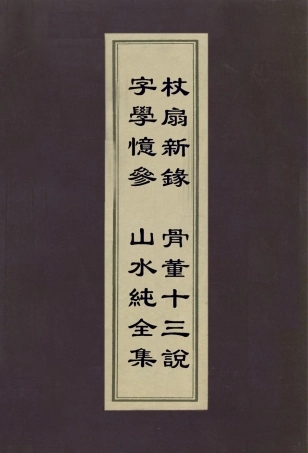 杖扇新錄　骨董十三說
字學憶參　山水純全集